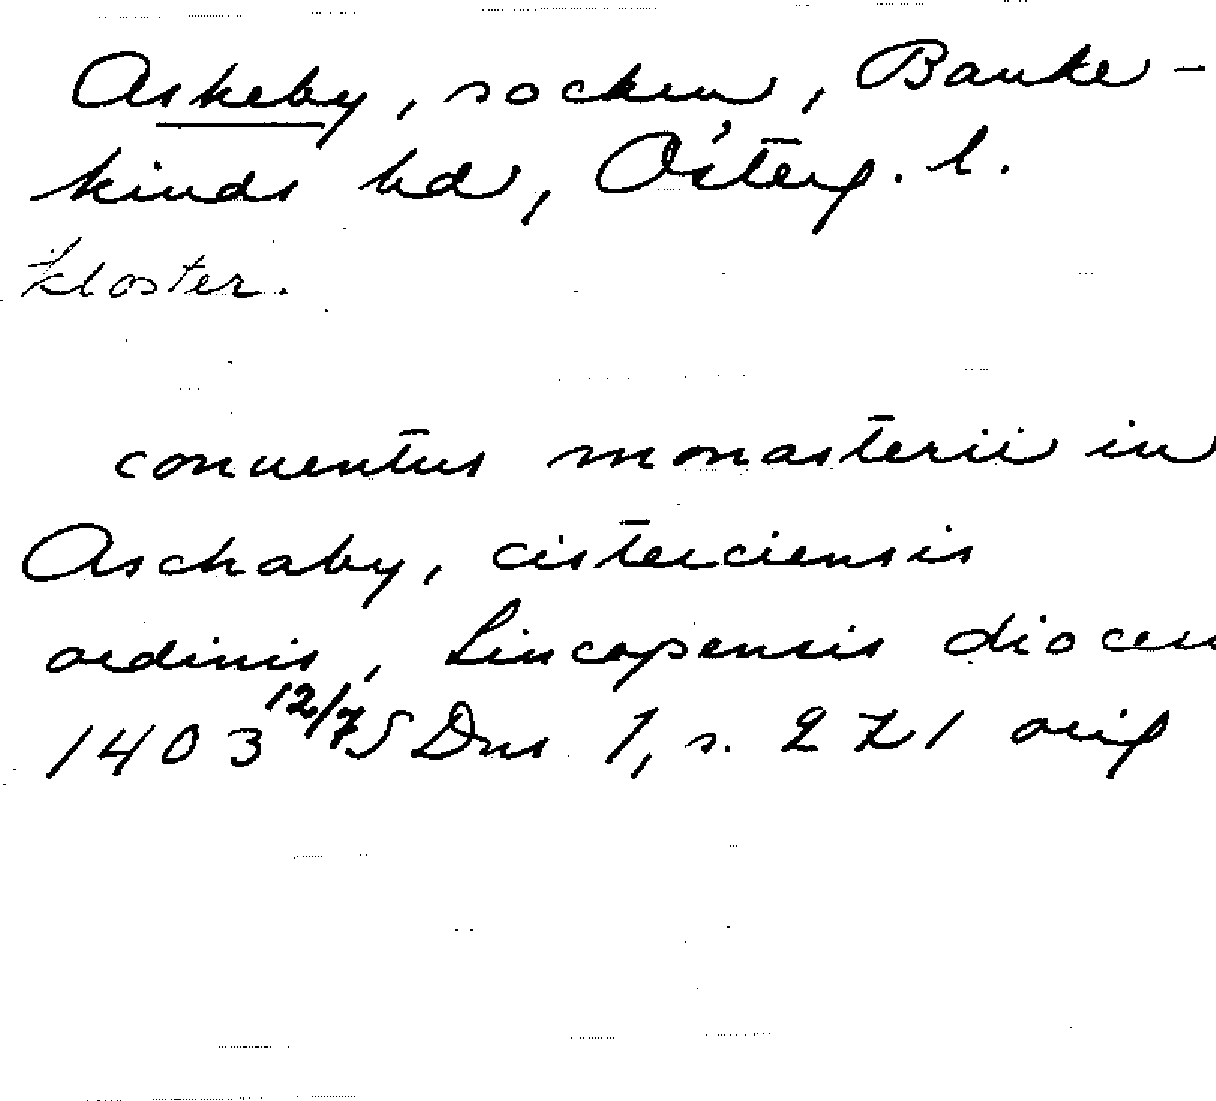 Askeby, socken, Banke-
kinds hd, Österg. l.
kloster.
conuentus monasterii in
Aschaby, cisterciensis
ordinis, Lincopensis dioces
1403 12/7 SDns 1, s. 271 orig